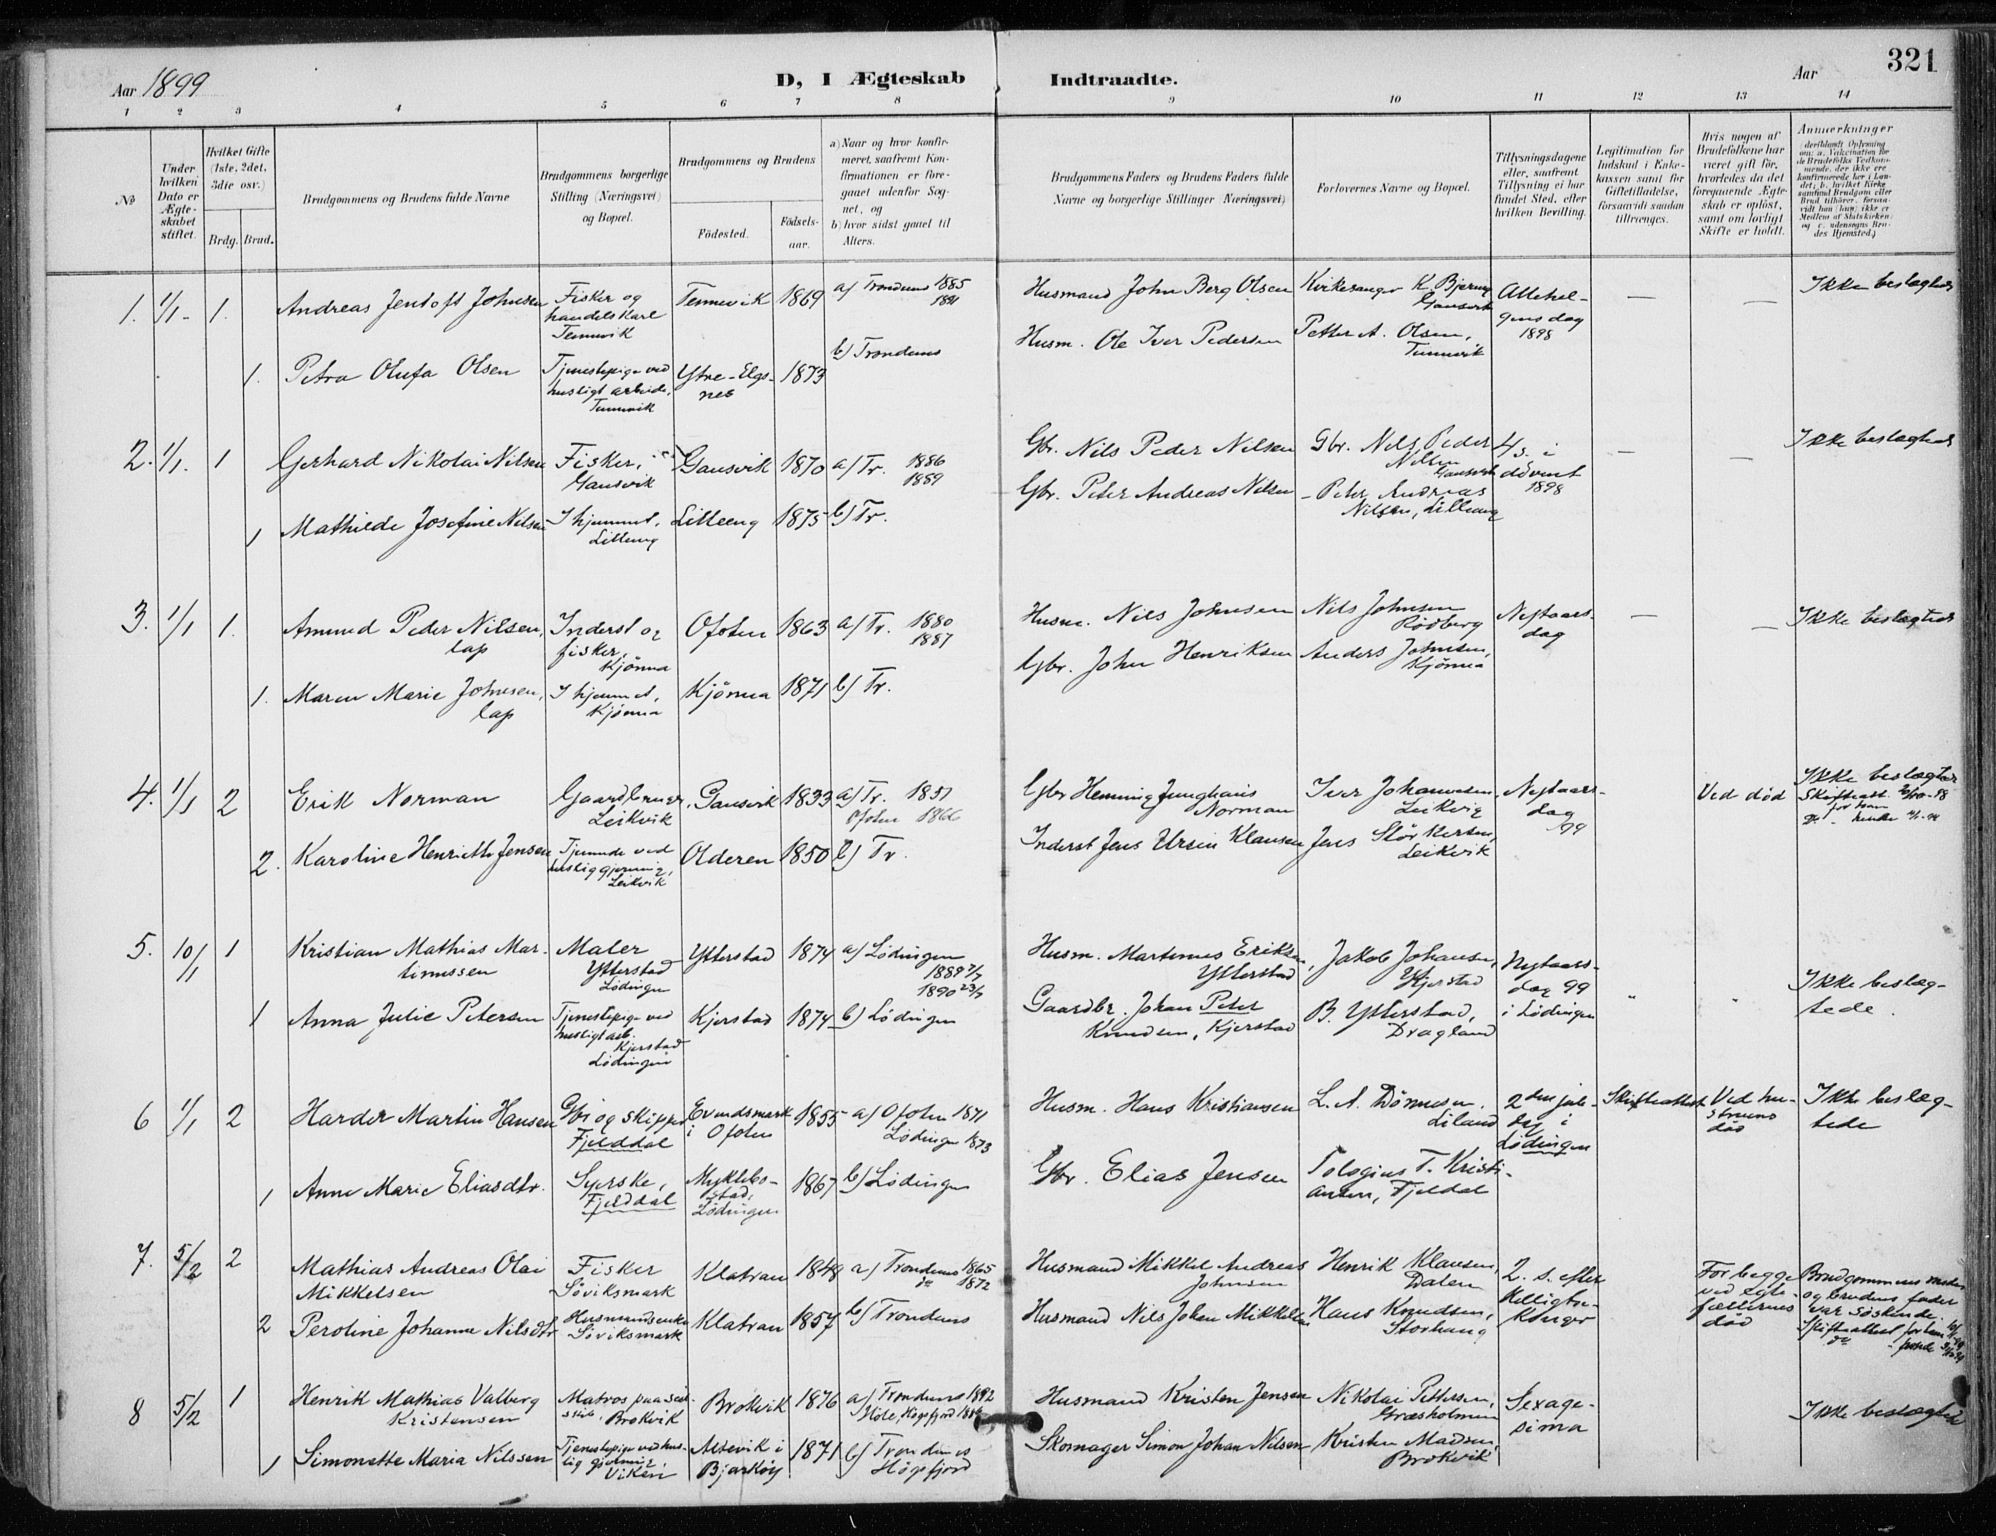 321
Aar 1899
D, I Ægteskab Indtraadte.
Aar
1 2 3 4 5 6 7 8 9 10 11 12 13 14
№
Under hvilken Dato er Ægte-skabet stiftet.
Hvilket Gifte (1ste, 2det, 3die osv.)
Brdg. Brud.
Brudgommens og Brudens fulde Navne
Brudgommens borgerlige Stilling (Næringsvei) og Bopæl.
Brudgommens og Brudens
Fødested.
Fødsels-aar.
a) Naar og hvor konfir-meret, saafremt Kon-firmationen er fore-gaaet udenfor Sog-net, og
b) hvor sidst gaaet til Alters.
Brudgommens Faders og Brudens Faders fulde Navne og borgerlige Stillinger (Næringsvei)
Forlovernes Navne og Bopæl.
Tillysningsdagene eller, saafremt Tillysning ei har fundet Sted, efter hvilken Bevilling.
Legitimation for Indskud i Enke-kassen samt for Giftetilladelse, forsaavidt saadan tiltrænges.
Hvis nogen af Brudefolkene har været gift før, hvorledes da det foregaaende Ægte-skab er opløst, samt om lovligt Skifte er holdt.
Anmerkninger (deriblandt Oplysning om: a. Vaccination for de Brudefolks Vedkom-mende, der ikke ere konfirmerede her i Lan-det; b. hvilket Kirke-samfund Brudgom eller Brud tilhører, forsaa-vidt han (hun) ikke er Medlem af Statskirken; og c. udensogns Bru-des Hjemsted.)
1. 1/1- 1. Andreas Jentoft Johnsen Fisker og handelskarl Tennevik Tennevik 1869 a) Trondenes 1885 1891 Husmand John Berg Olsen Kirkesanger K Bjering Gausvik Allehel-gensdag 1898 — — Ikke beslægtede
1. Petra Olufa Olsen Tjenestepige ved husligt arbeide, Tennevik Ytre-Elgs-nes 1873 b) Trondenes Husm. Ole Iver Pedersen Petter A. Olsen, Tennevik
2. 1/1. 1 Gerhard Nikolai Nilsen Fisker, Gausvik Gausvik 1870 a) Tr. 1886 1889 Gbr. Nils Peder Nilsen Gbr. Nils Peder Nilsen Gausvik 4 s. i advent 1898 — — Ikke beslægtede
1 Mathilde Josefine Nilsen I hjemmet, Lilleeng Lilleeng 1875 b) Tr. Gbr. Peter Andreas Nilsen - Peter Andreas Nilsen, Lilleeng
3. 1/1 1. Amund Peder Nilsen, lap Inderst og fisker, Kjönna Ofoten 1863 a) Tr. 1880 1887 Husm. Nils Johnsen Nils Johnsen Rödberg Nytaars-dag — — Ikke beslægtede
1. Maren Marie Johnsen, lap I hjemmet, Kjönna Kjönna 1871 b) Tr. Gbr. John Henriksen Anders Johnsen, Kjönna
4. 1/1 2 Erik Norman Gaardbruger, Leikvik Gausvik 1833 a) Tr. 1851 Ofoten 1866 Gbr Henning Junghans Norman Iver Johannesen Leikvig Nytaars-dag 99 Ved död Ikke beslægtede
2. Karoline Henriette Jensen Tjenende ved huslig gjerning, Leikvik Olderen 1850 b) Tr. Inderst Jens Ursin Klausen Jens Störkersen, Leikvik
5. 10/1 1 Kristian Mathias Mar-tinussen Maler Ytterstad Lödingen Ytterstad 1874 a) Lödingen 1889 7/7 1890 23/7 Husm. Martinus Eriksen, Ytterstad Jakob Johansen, Kjerstad Nytaars-dag 99 i Lödingen " " Ikke beslæg-tede.
1 Anna Julie Petersen Tjenestepige ved husligt arb. Kjerstad Lödingen Kjerstad 1874 b) Lödingen Gaardbr. Johan Peter Knudsen, Kjerstad B. Ytterstad, Dragland
6 1/1 2 Harder Martin Hansen Gbr og Skipper Fjelddal Evendsmark i Ofoten 1855 a) Ofoten 1871 Lödingen 1873 Husm. Hans Kristiansen L. A. Dönnesen, Liland 2den jule-dag i Lödingen Skifteattest Ved hu-struens död Ikke beslæg-tede
1 Anne Marie Eliasdtr. Syerske, Fjelddal Myklebo-stad, Lödingen 1867 b) Lödingen Gbr. Elias Jensen Tologius T. Kristi-ansen, Fjeldal
7. 5/2 2 Mathias Andreas Olai Mikkelsen Fisker Söviksmark Klatran 1848 a) Trondenes 1865 do 1872 Husmand Mikkel Andreas Johnsen Henrik Klausen, Dalen 2. s. efter Helligtre-konger For begge ved ægte-fællernes död Brudgommens moder og brudens fader var söskende. Skifteattest for ham
2 Peroline Johanne Nilsdtr Husmandsenke Söviksmark Klatran 1857 b) Trondenes Husmand Nils Johan Mikkelsen Hans Knudsen, Storhaug
8 5/2 1 Henrik Mathias Valberg Kristensen Matros paa seil-skib, Brokvik Brokvik 1876 a) Trondenes 1892 Husmand Kristen Jensen Nikolai Pettersen, Græsholmen Sexage-sima Ikke beslægtede
1 Simonette Maria Nilssen Tjenestepige ved hus-lig gjerning, Viken Altevik i Bjarköy 1871 b) Trondenes Högsfjord Skomager Simon Johan Nilsen Kristen Madsen, Brokvik